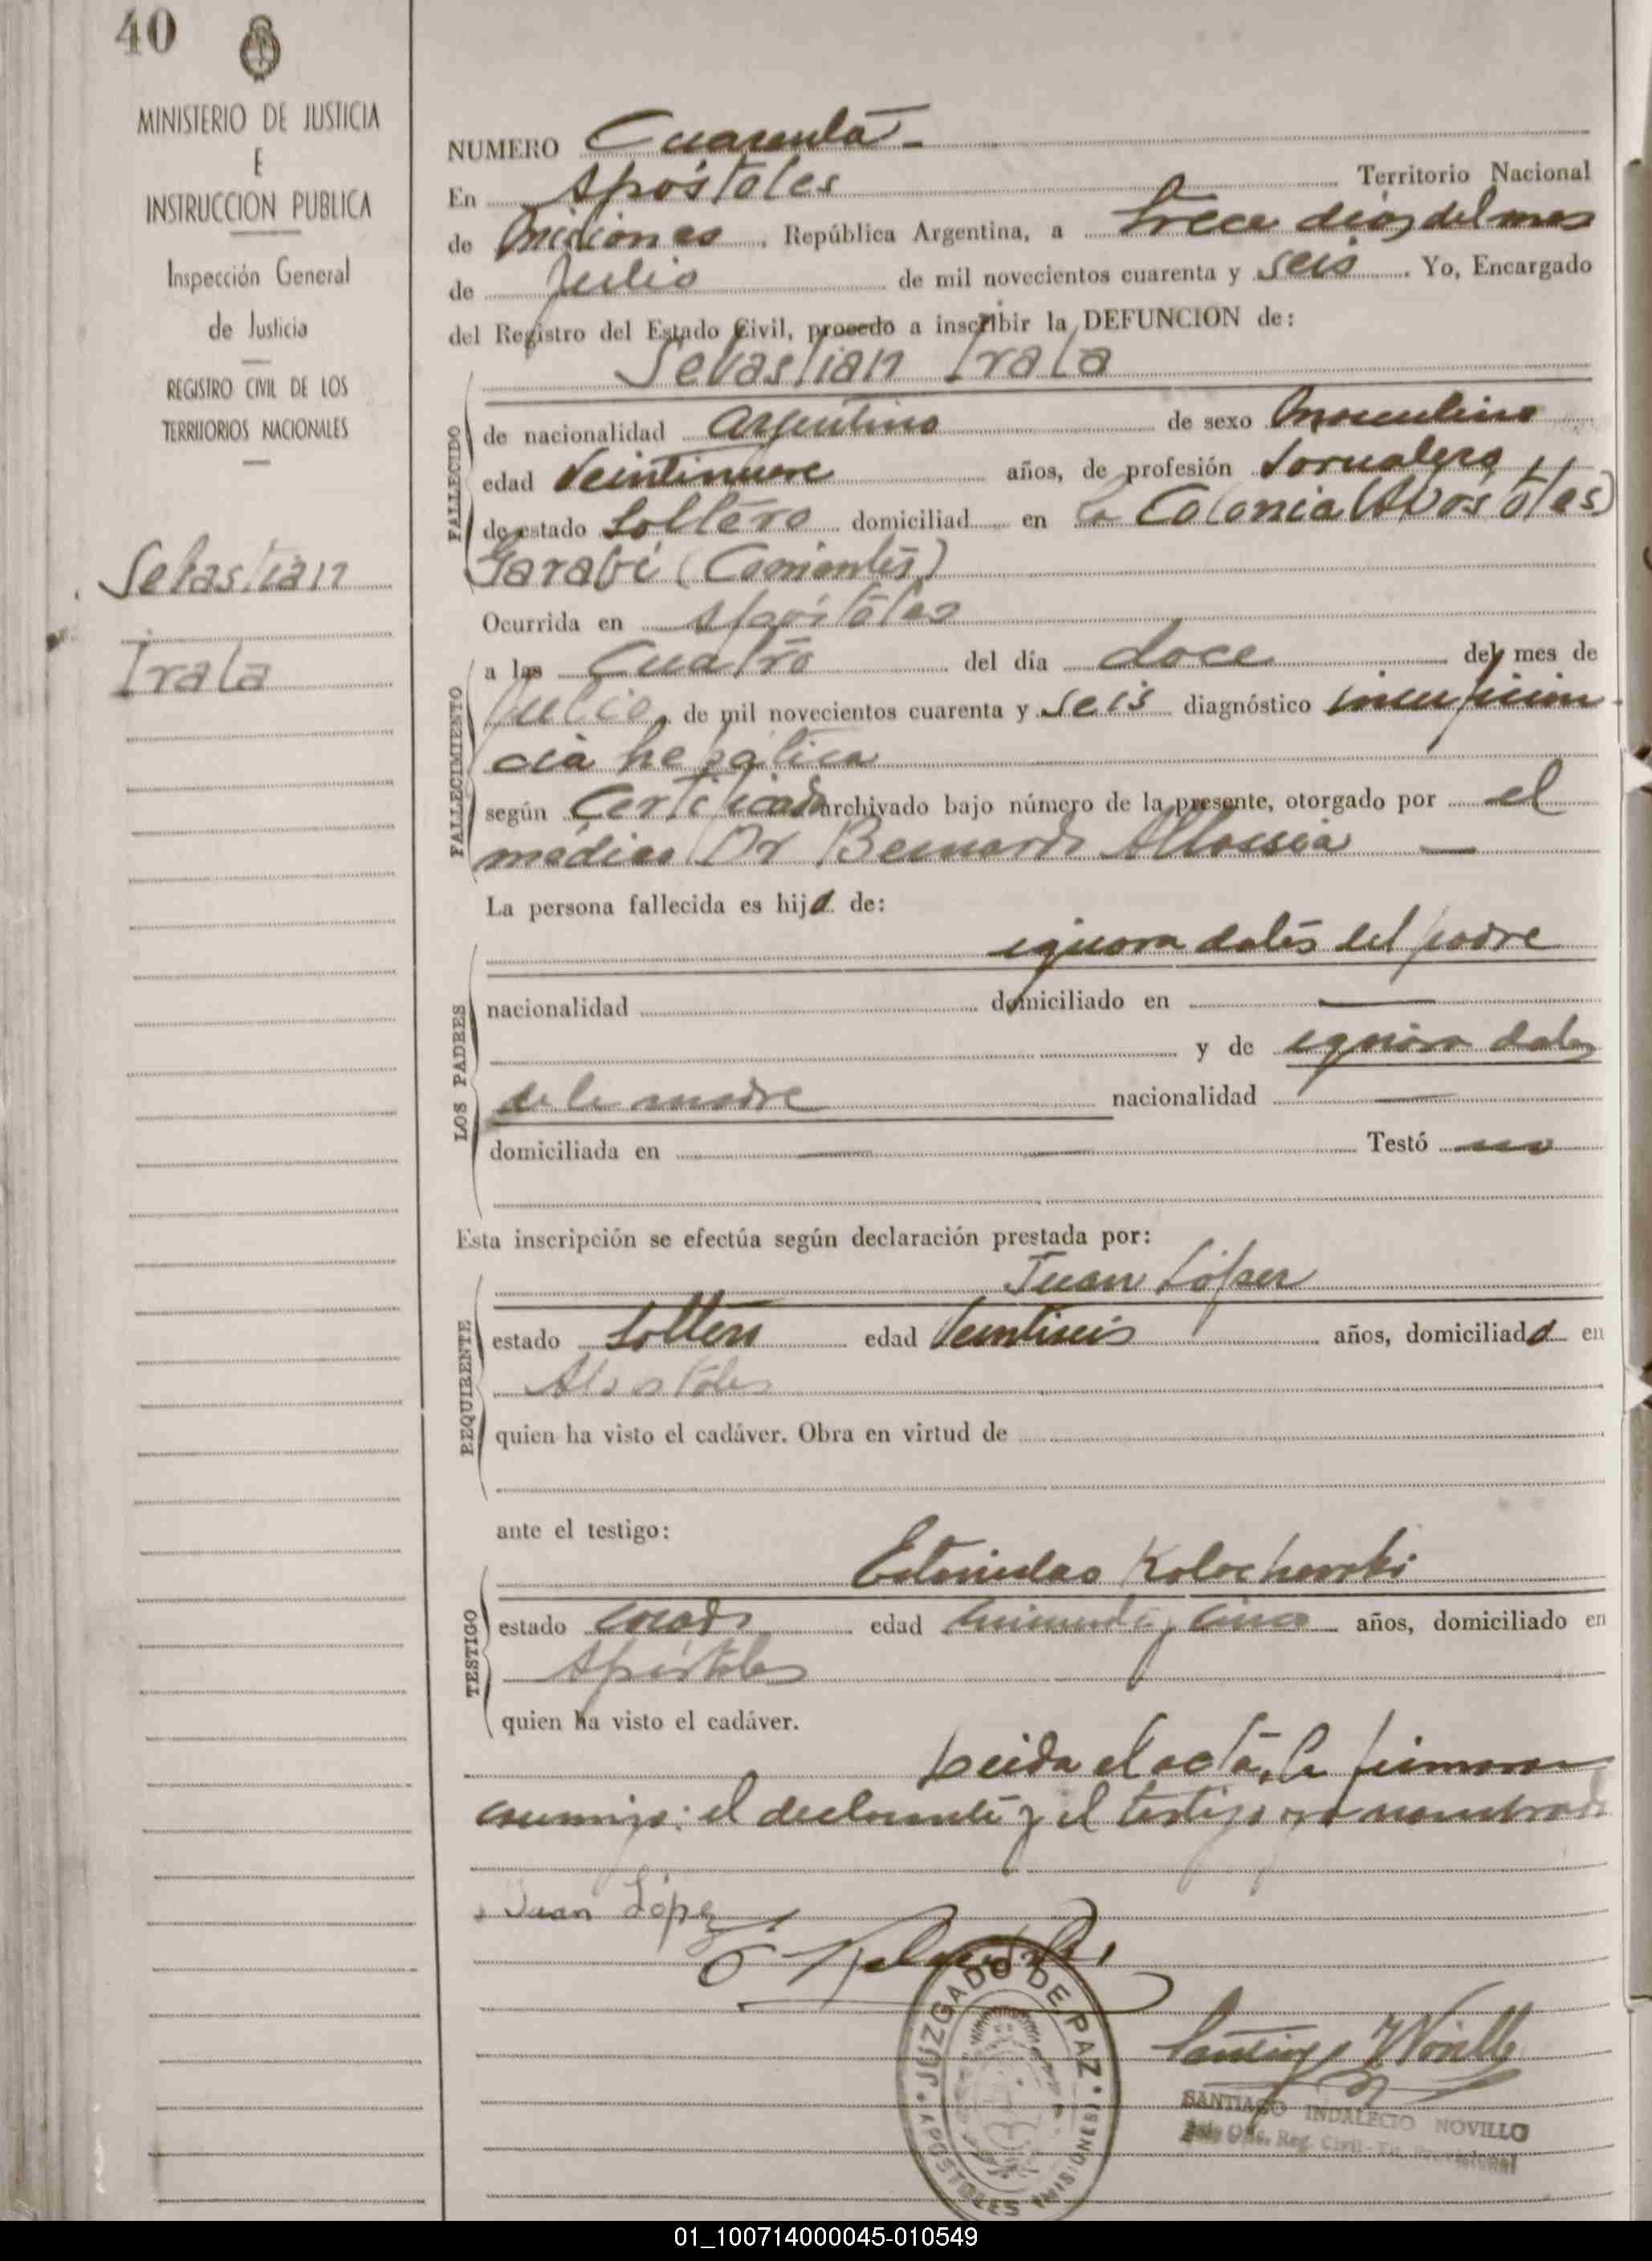 40
MINISTERIO DE JUSTICIA
E
INSTRUCCION PUBLICA
Inspección General
de Justicia
REGISTRO CIVIL DE LOS
TERRITORIOS NACIONALES
Sebastián
Irala
NUMERO Cuarenta
En Apóstoles Territorio Nacional
de Misiones, República Argentina, a trece días del mes
de Julio de mil novecientos cuarenta y seis. Yo, Encargado
del Registro del Estado Civil, procedo a inscribir la DEFUNCION de:
Sebastian Irala
FALLECIDO
de nacionalidad argentino de sexo Masculino
edad Veintinueve años, de profesión Jornalero
de estado Soltero domiciliad en la Colonia (Apostoles)
Garabí (Corrientes)
Ocurrida en Apóstoles
FALLECIMIENTO
a las Cuatro del día doce del mes de
Julio, de mil novecientos cuarenta y seis diagnóstico insuficien
cia hepática
según Certificado archivado bajo número de la presente, otorgado por el
médico Dr Bernardo
La persona fallecida es hijo de:
LOS PADRES
ignora datos del padre
nacionalidad domiciliado en
y de ignora datos
de la madre nacionalidad
domiciliada en Testó no
Esta inscripción se efectúa según declaración prestada por:
REQUIRENTE
Juan López
estado Soltero edad Veintiseis años, domiciliado en
Apostoles
quien ha visto el cadáver. Obra en virtud de
ante el testigo:
TESTIGO
Estanislao Kolochevski
estado casado edad cincuenta y cinco años, domiciliado en
Apóstoles
quien ha visto el cadáver.
Leida el acta, la firmaron
conmigo: el declarante y el testigo nombrado
Juan López
JUZGADO DE PAZ
APOSTOLES (MISIONES)
SANTIAGO INDALECIO NOVILLO
01_100714000045-010549